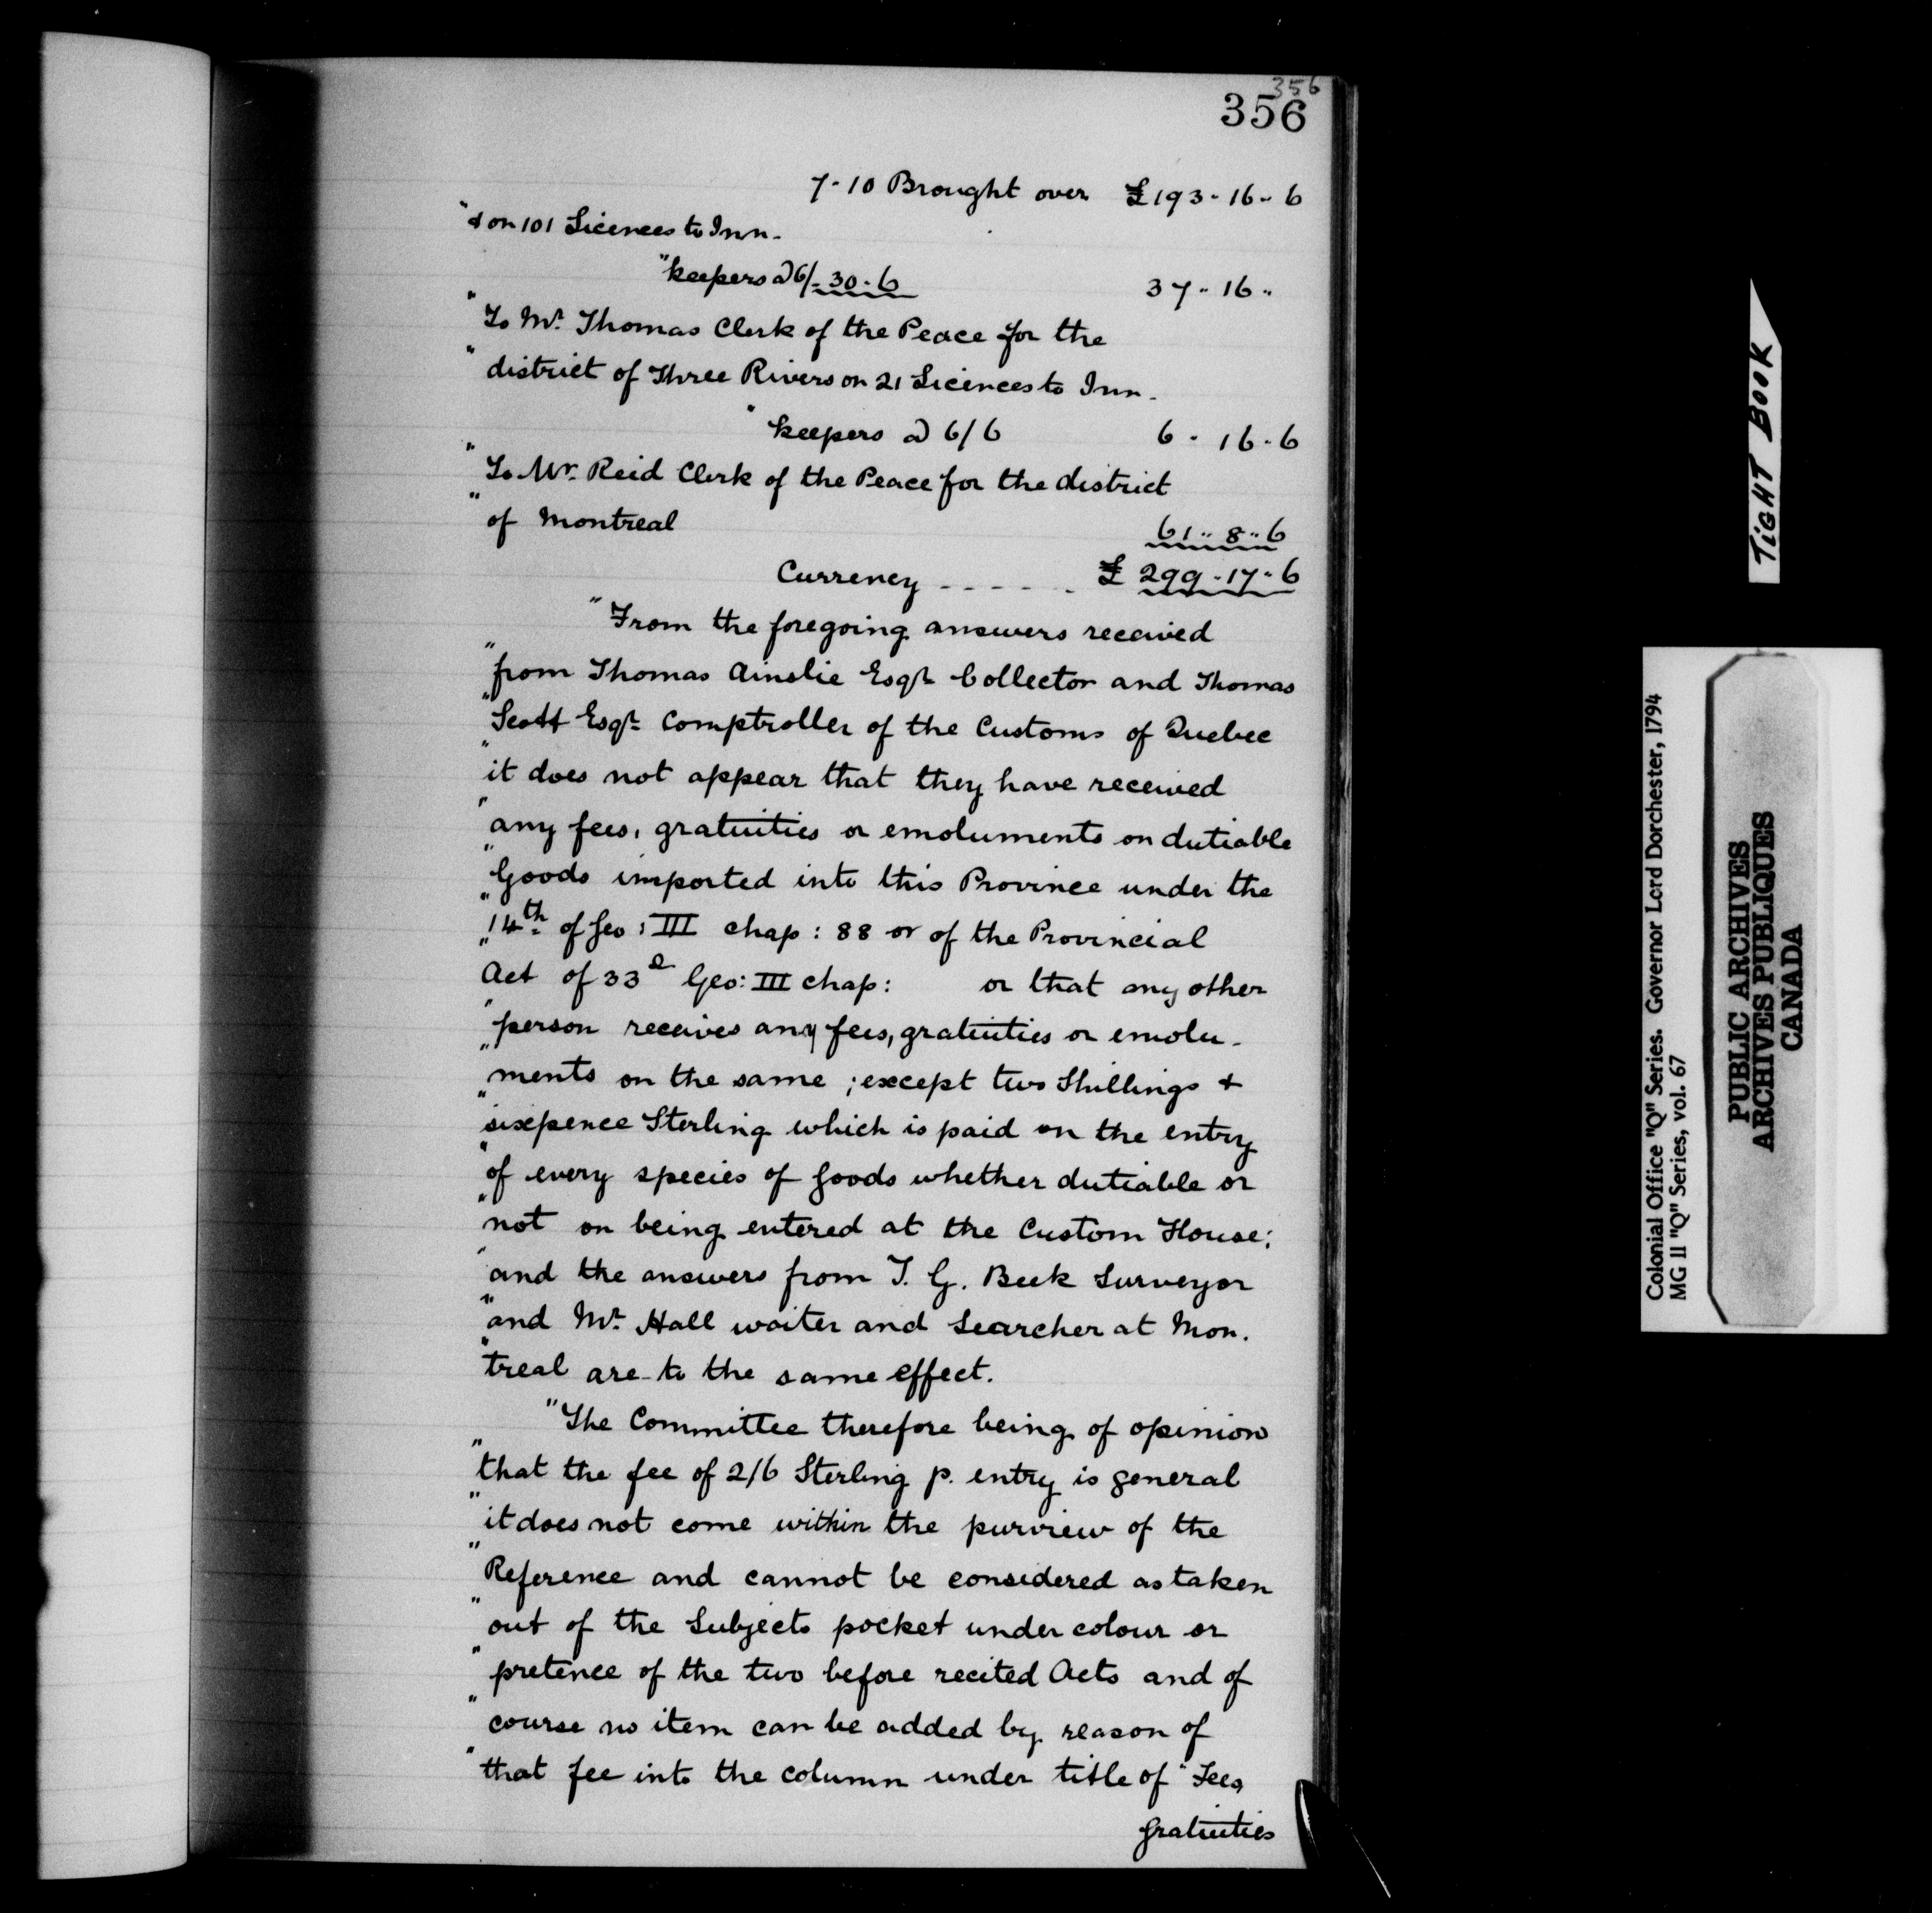 356
356
7-10 Brought over £193-16-6
"& on 101 Licences to Inn-
"keepers @ 6/ 30-6 37-16-
"To Mr. Thomas Clerk of the Peace for the
"district of Three Rivers on 21 Licences to Inn-
"keepers @ 6/6 6-16-6
"To Mr. Reid Clerk of the Peace for the district
"of Montreal 61-8-6
Currency ------ £299-17-6
"From the foregoing answers received
"from Thomas Ainslie Esqr. Collector and Thomas
"Scott Esqr. Comptroller of the Customs of Quebec
"it does not appear that they have received
"any fees, gratuities or emoluments on dutiable
"Goods imported into this Province under the
"14th of Geo: III chap: 88 or of the Provincial
Act of 33d Geo: III chap: or that any other
"person receives any fees, gratuities or emolu-
"ments on the same; except two Shillings &
"sixpence Sterling which is paid on the entry
"of every species of Goods whether dutiable or
"not on being entered at the Custom House;
"and the answers from T. G. Beek Surveyor
"and Mr. Hall waiter and Searcher at Mon.
"treal are to the same effect.
"The Committee therefore being of opinion
"that the fee of 2/6 Sterling p. entry is general
"it does not come within the purview of the
"Reference and cannot be considered as taken
"out of the Subjects pocket under colour or
"pretence of the two before recited Acts and of
"course no item can be added by reason of
"that fee into the column under title of "Fees,
gratuities
TIGHT BOOK
Colonial Office "Q" Series. Governor Lord Dorchester, 1794
MG 11 "Q" Series, vol. 67
PUBLIC ARCHIVES
ARCHIVES PUBLIQUES
CANADA